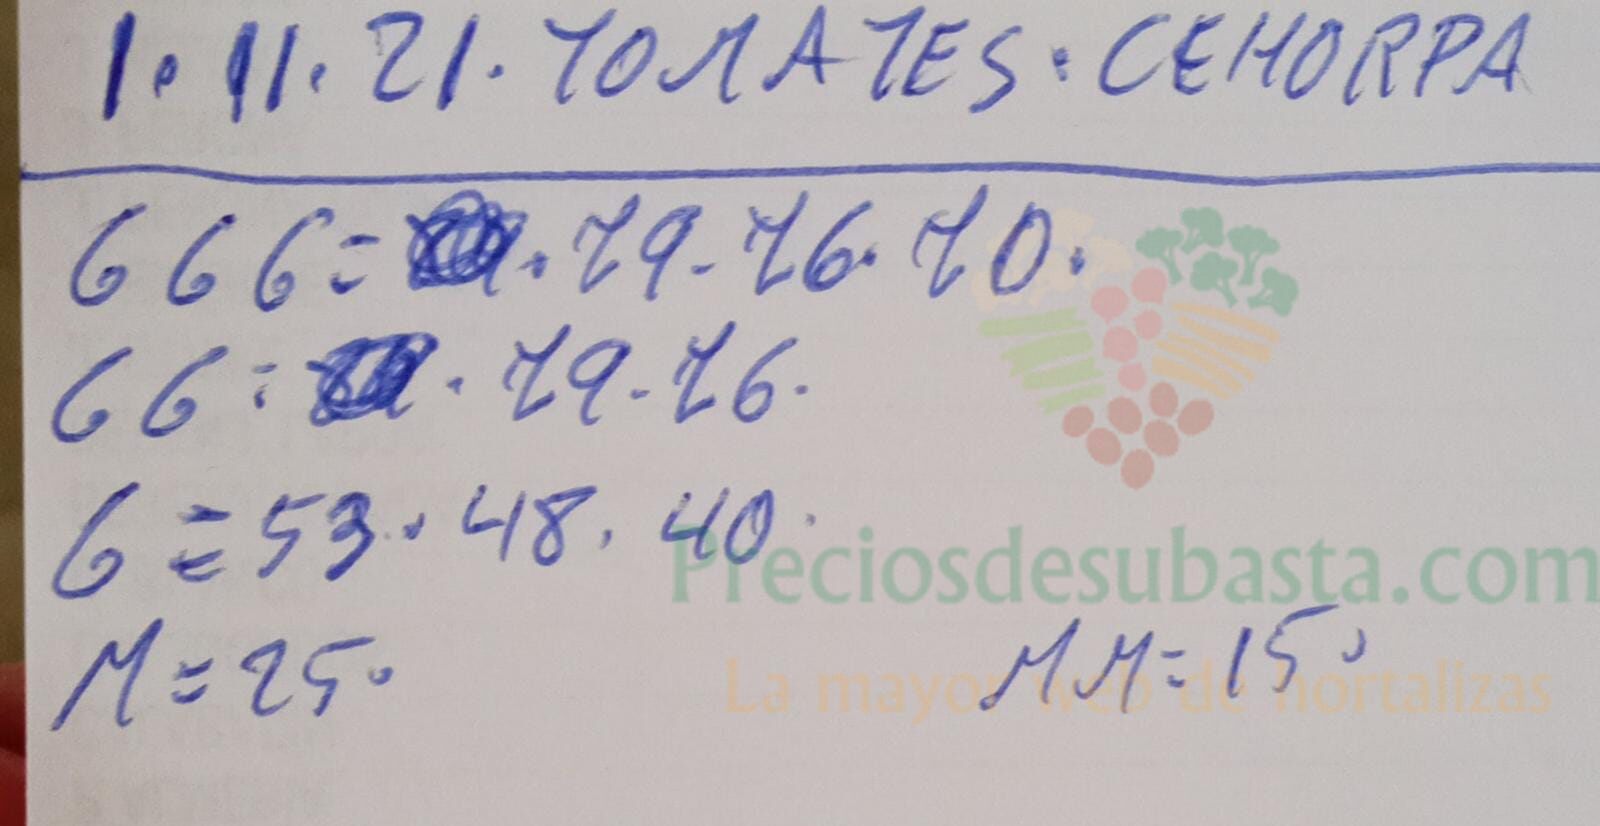 1. 11. 21. TOMATES: CEHORPA
GGG= . 79-76. 70.
GG: . 79-76.
G=53. 48. 40.
Preciosdesubasta.com
M=25.
MM=15.
La mayor web de hortalizas